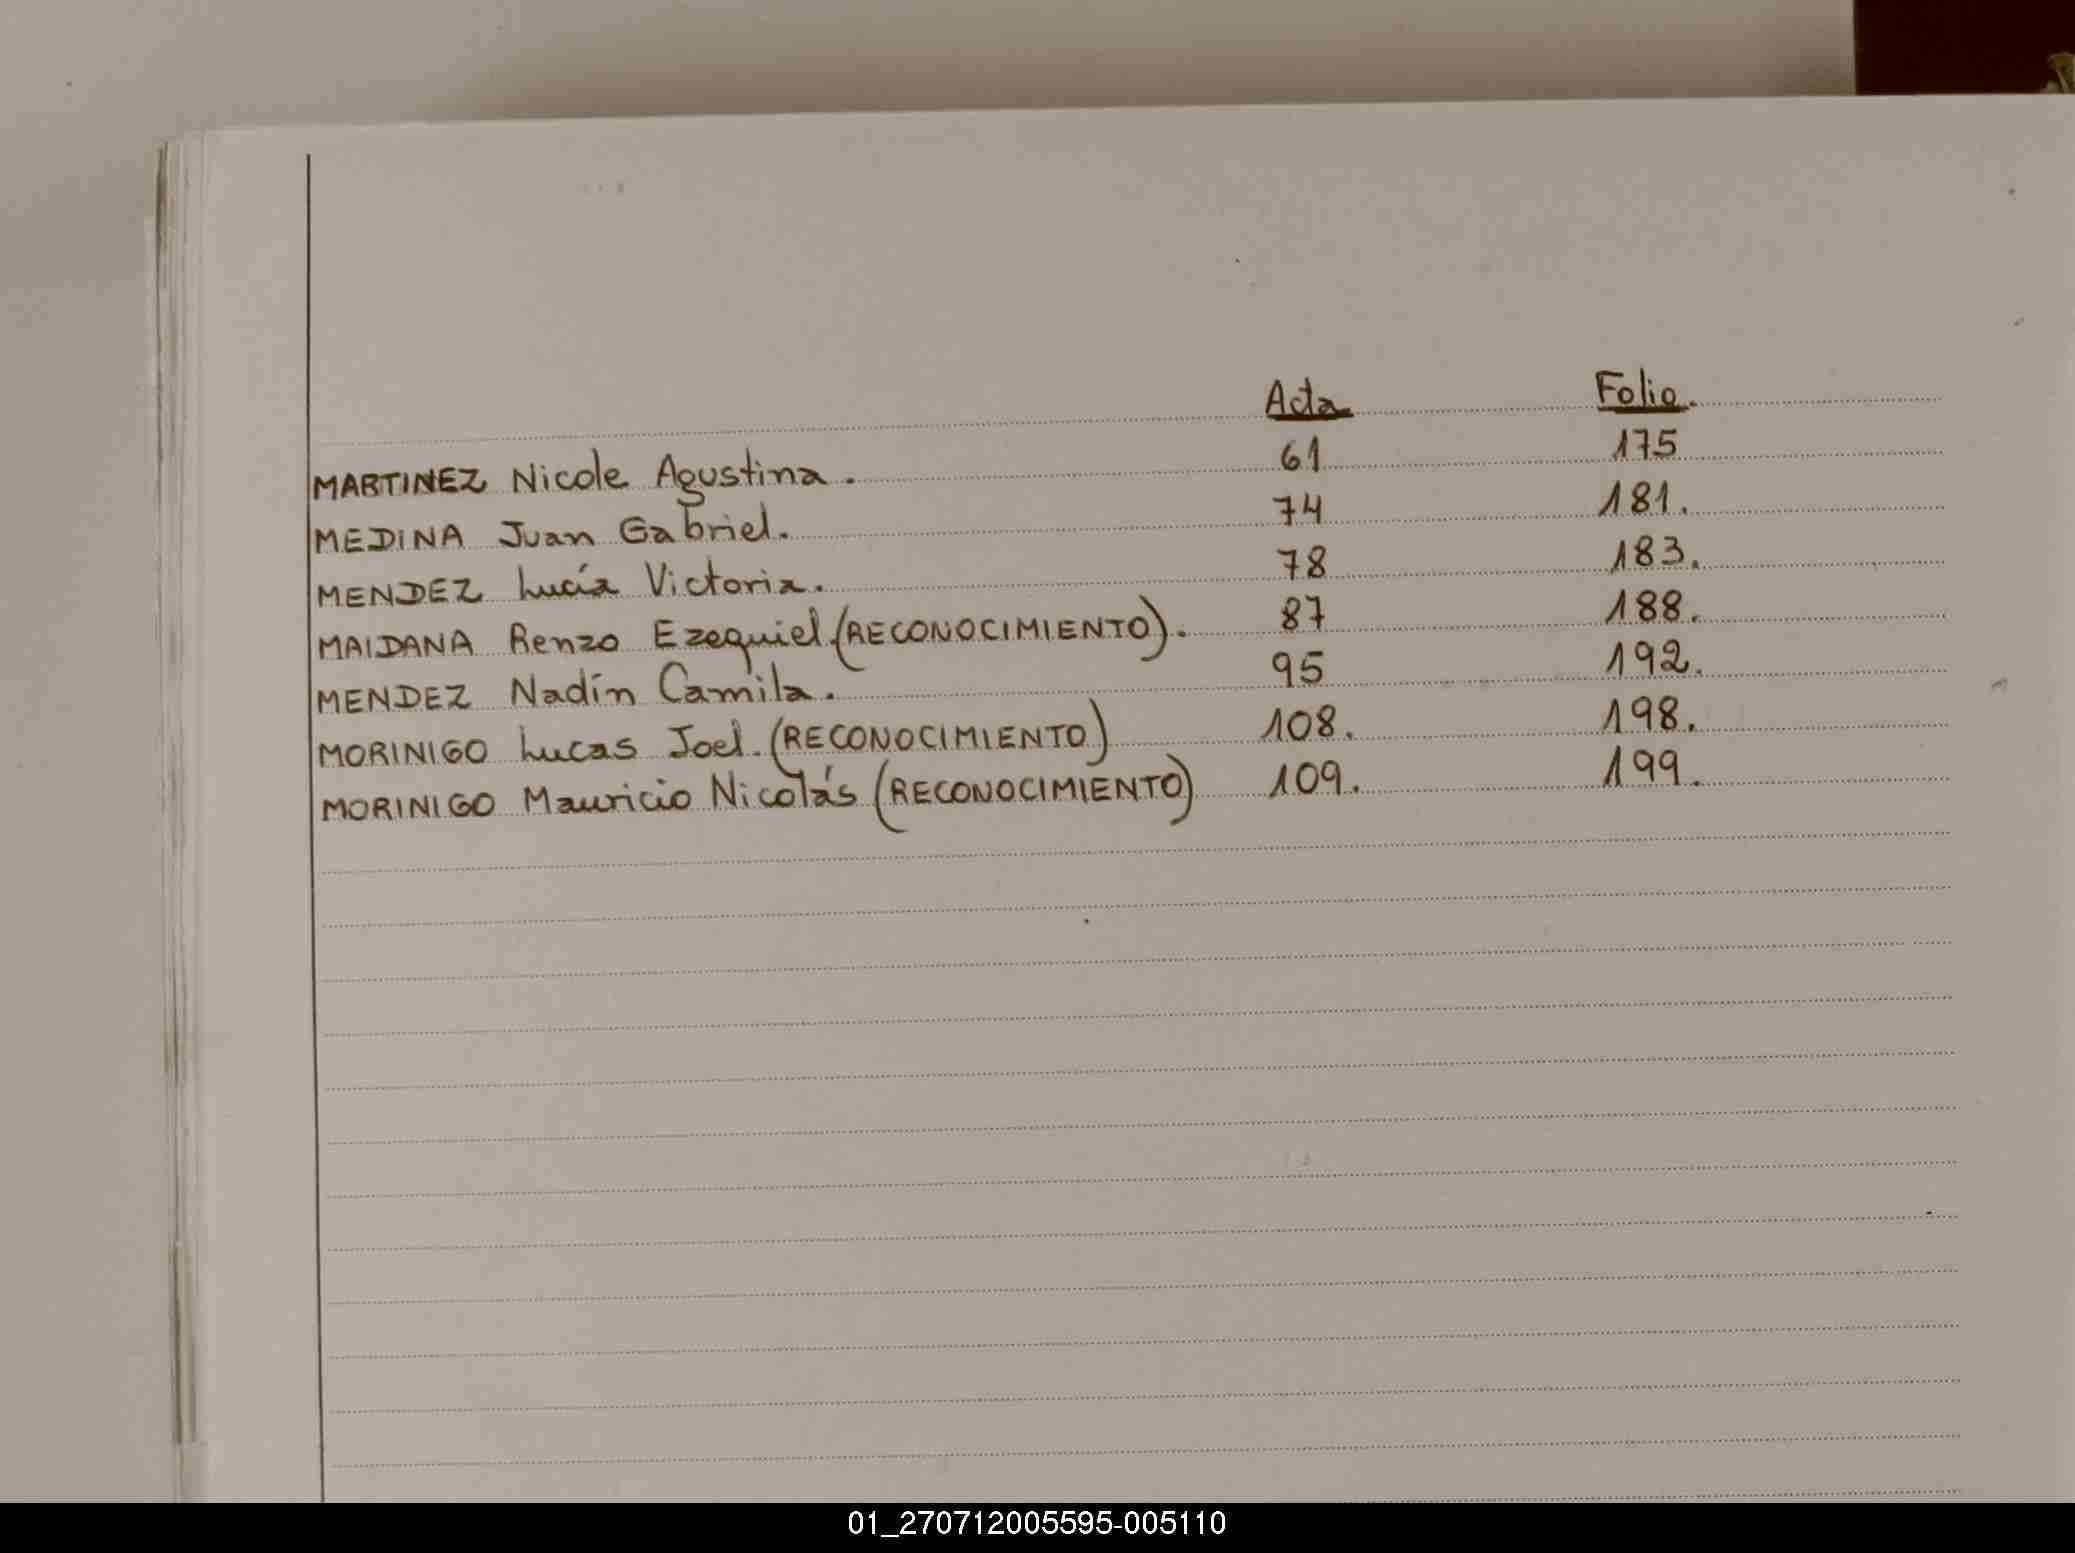 Acta Folio.
MARTINEZ Nicole Agustina. 61 175
MEDINA Juan Gabriel. 74 181.
MENDEZ Lucía Victoria. 78 183.
MAIDANA Renzo Ezequiel. (RECONOCIMIENTO). 87 188.
MENDEZ Nadín Camila. 95 192.
MORINIGO Lucas Joel. (RECONOCIMIENTO) 108. 198.
MORINIGO Mauricio Nicolás (RECONOCIMIENTO) 109. 199.
01_270712005595-005110